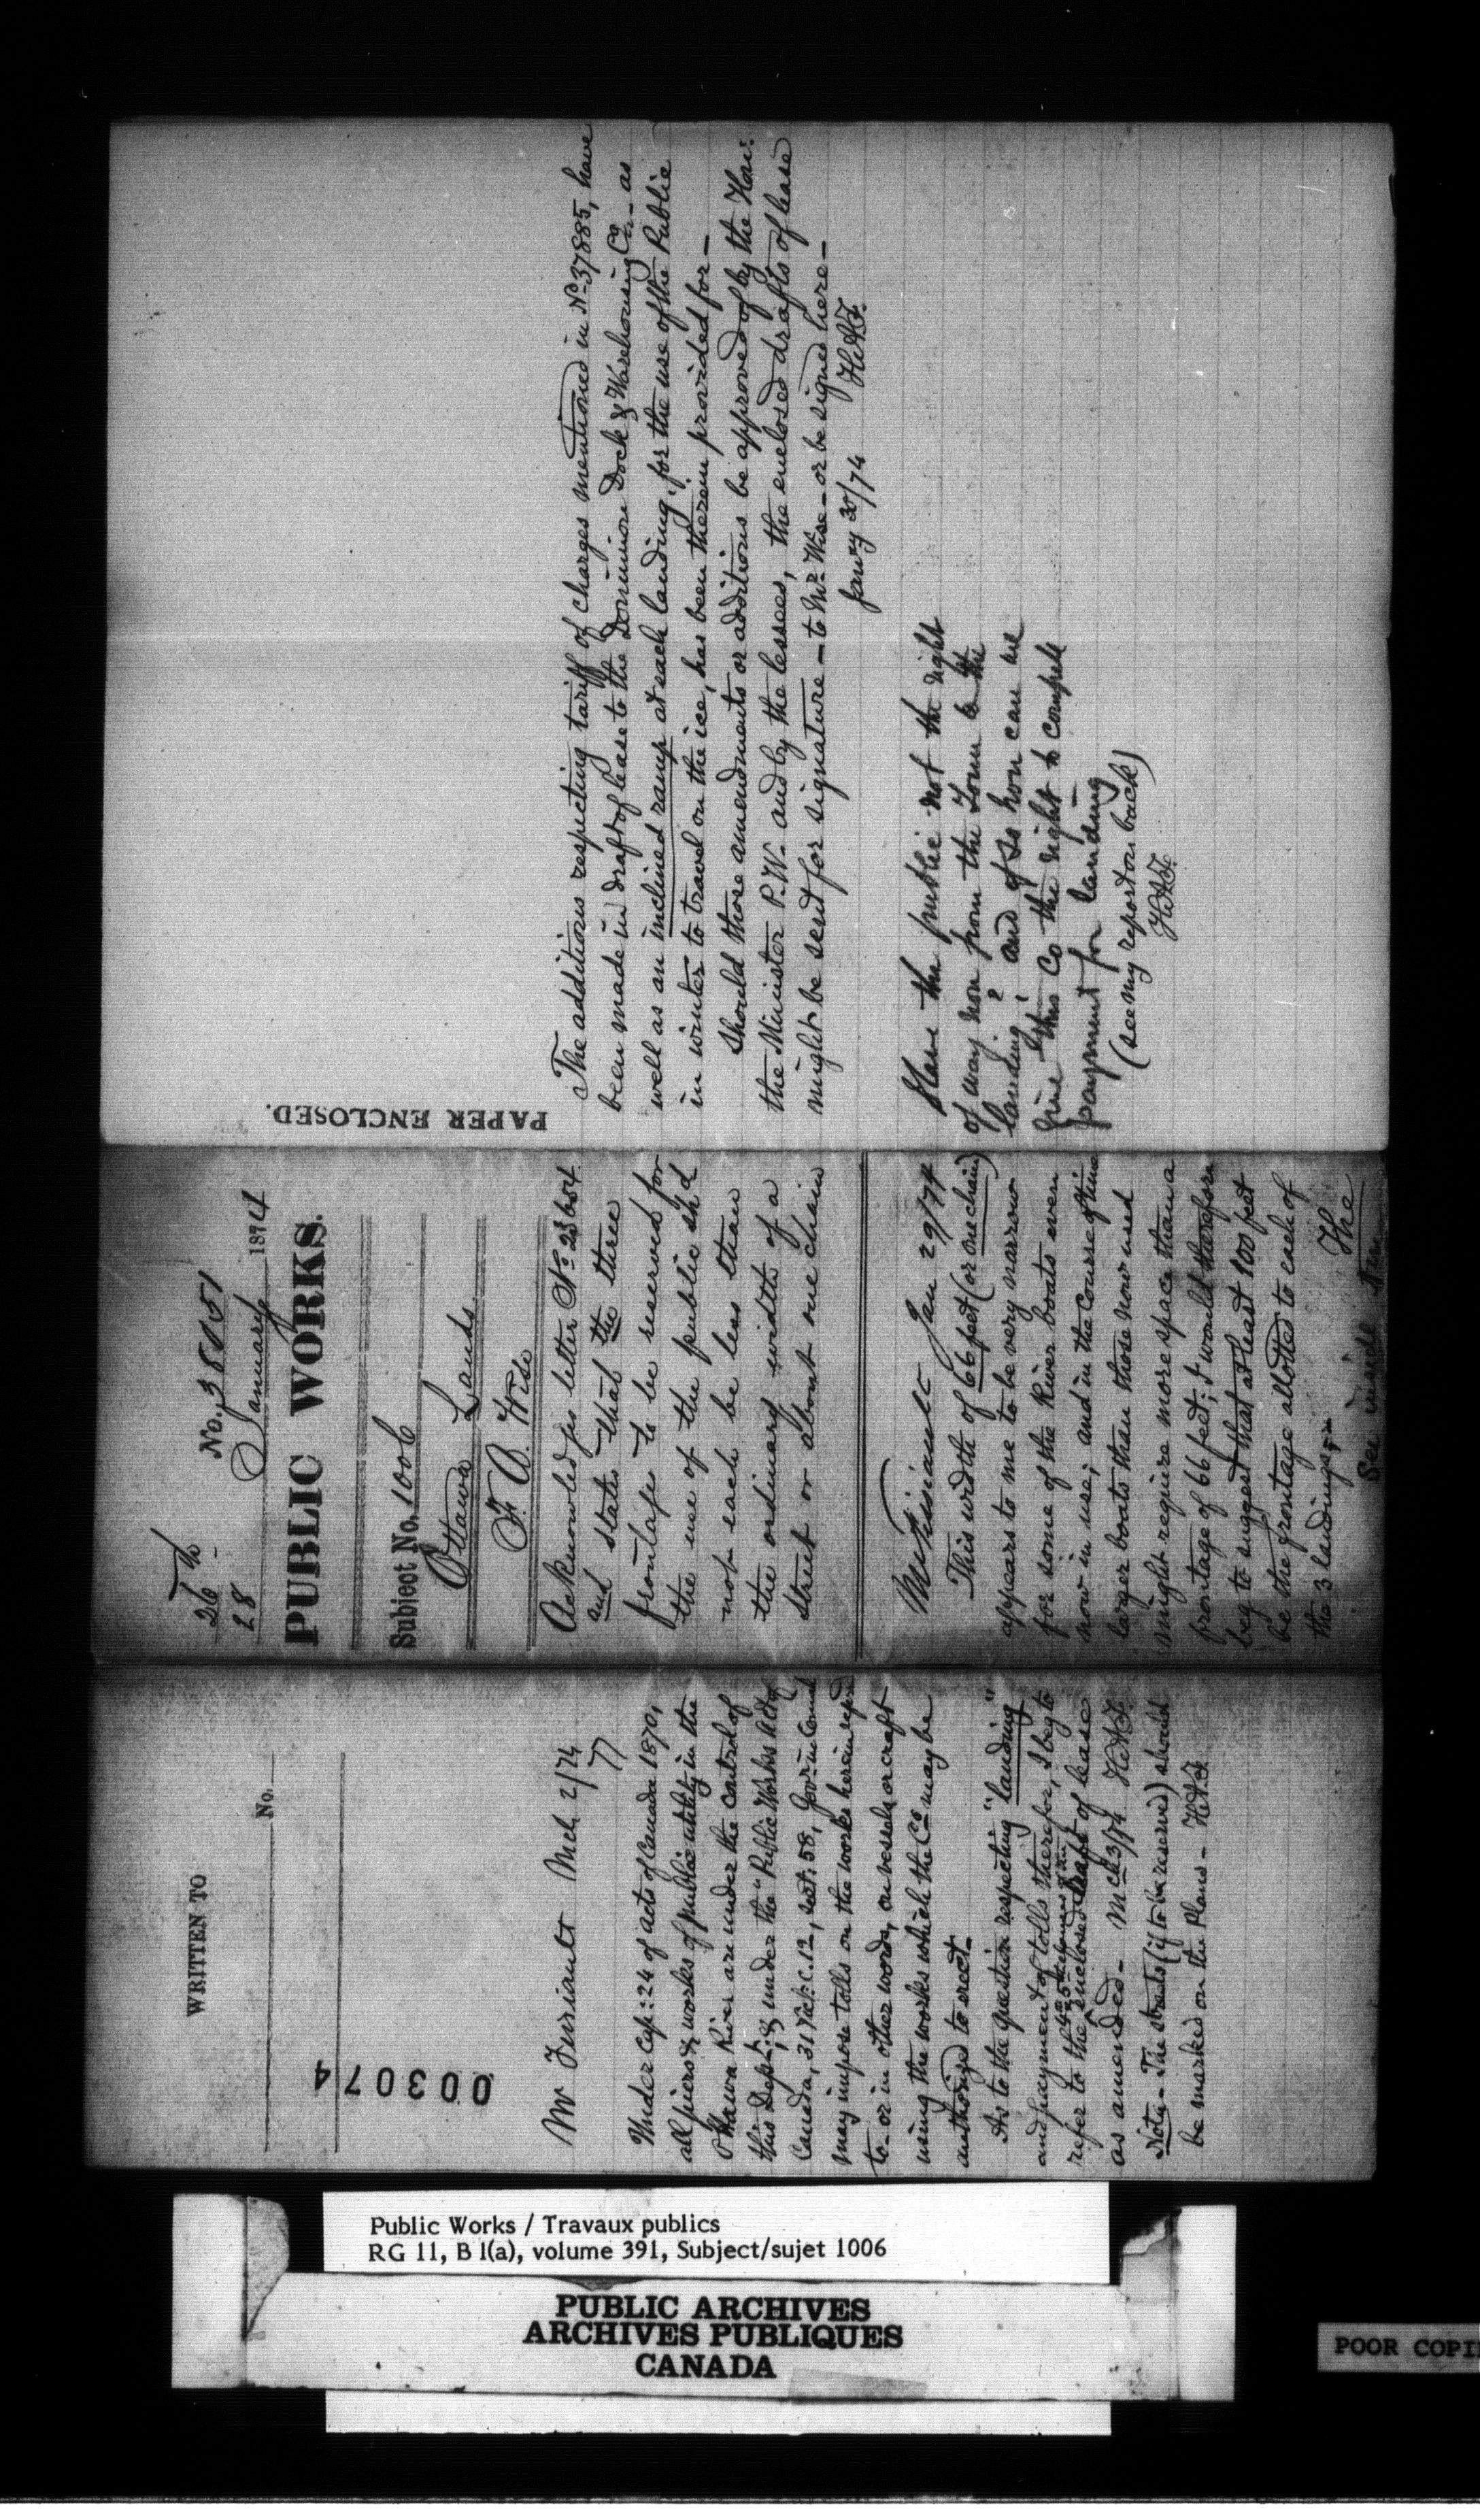 WRITTEN TO
No.
003074
Mr Fissiault Mch 2/74
Under Cap: 24 of acts of Canada 1870,
all piers & works of public utility in the
Ottawa River are under the control of
this Dept: & under the "Public Works Act of
Canada, 31 Vict: C. 12, sect: 58, Govr in Council
may impose tolls on the works herein refd
to - or in other words, on vessels or craft
using the works which the Co may be
authorized to erect -
As to the question respecting "landing"
and payment of tolls therefor, I beg to
refer to the 4th & 5th of the
enclosed draft of lease
as amended - Mch 3/74 H.A.F.
Note - The streets (if to be reserved) should
be marked on the Plans - H.A.F.
26th
28 No. 38051
January 1874
PUBLIC WORKS.
Subject No. 1006
Ottawa Lands
F. A. Wise
Acknowledges letter No 28654
and states that the three
frontages to be reserved for
the use of the public sh'd
not each be less than
the ordinary width of a
street or about one chain
Mr Fissiault Jan 29/74
This width of 66 feet (or one chain)
appears to me to be very narrow
for some of the River boats even
now in use; and in the course of time
larger boats than those now used
might require more space than a
frontage of 66 feet; I would therefore
beg to suggest that at least 100 feet
be the frontage allotted to each of
the 3 landings -
The
See inside
PAPER ENCLOSED.
The additions respecting tariff of charges mentioned in No 37885, have
been made in draft of lease to the Dominion Dock & Warehousing Co - as
well as an inclined ramp at each landing, for the use of the Public
in winter to travel on the ice, has been therein provided for -
Should those amendments or additions be approved of by the Hon:
the Minister P.W. and by the lessees, the enclosed drafts of lease
might be sent for signature - to Mr Wise - or be signed here -
Jany 30/74 H.A.F.
Have the public not the right
of way now from the Town to the
landing? and if so how can we
give this Co the right to compell
payment for landing -
(see my report on back)
H.A.F.
Public Works / Travaux publics
RG 11, B 1(a), volume 391, Subject/sujet 1006
PUBLIC ARCHIVES
ARCHIVES PUBLIQUES
CANADA
POOR COPI